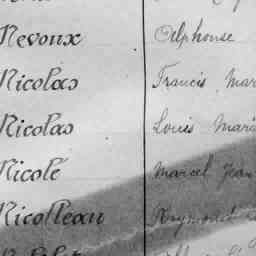 Nevoux Alphonse
Nicolas Francis Mar
Nicolas Louis Mari
Nicole Marcel Jean
Nicolleau Raymond